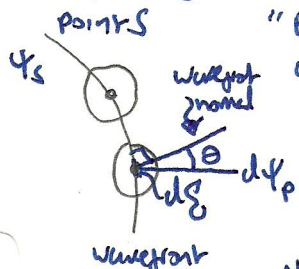 points
ψs
wavefront
normal
θ
dψp
dξ
wavefront